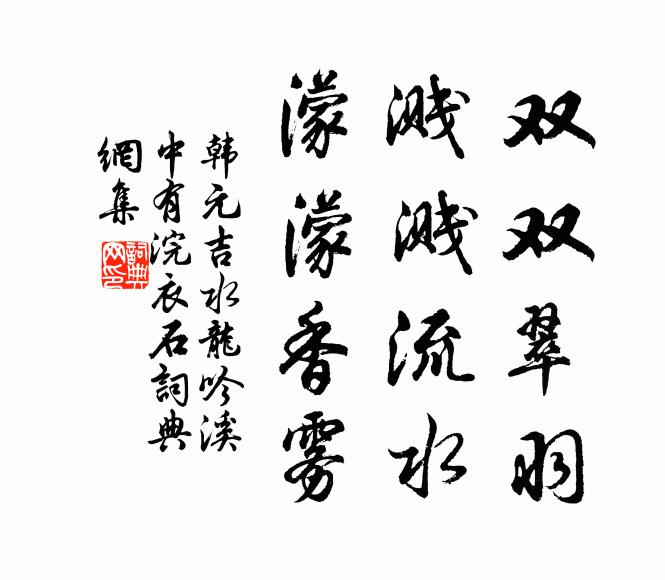 双双翠羽
溅溅流水
濛濛香雾
韩元吉水龍吟溪
中有浣衣石詞典
網集
詞典
网印